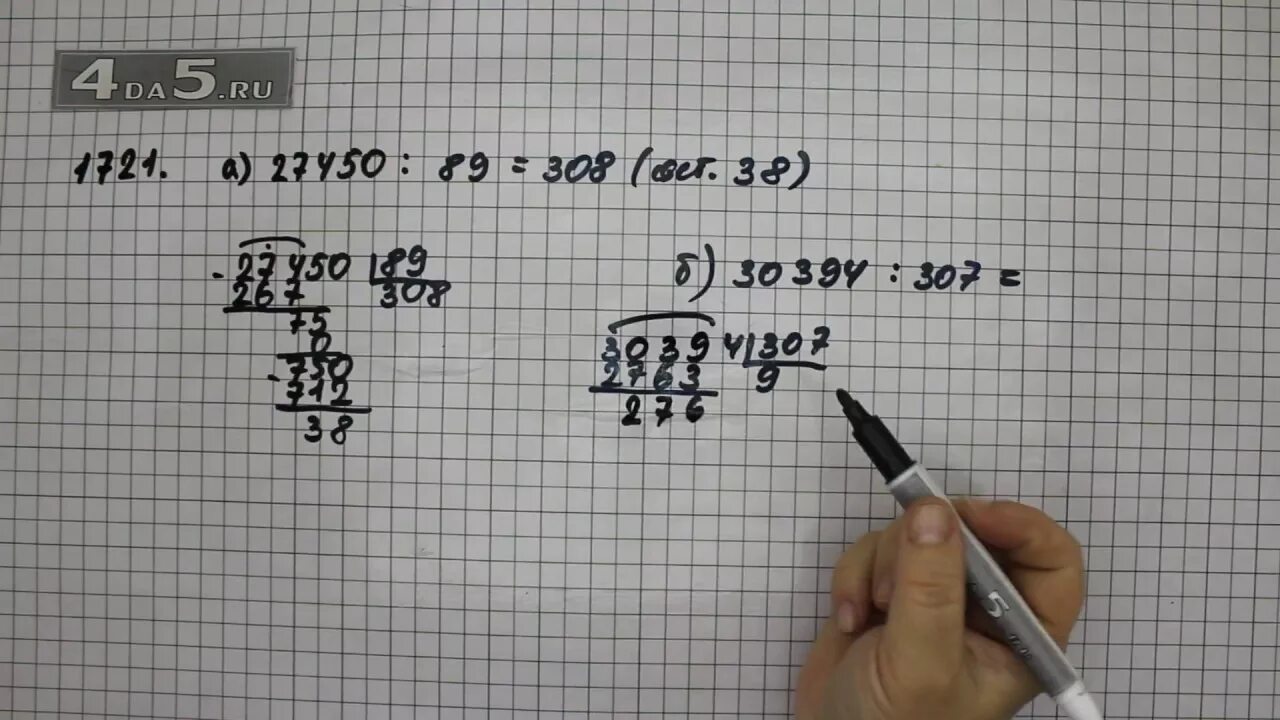 4DA5.RU
1721. а) 27450 : 89 = 308 (ост. 38)
- 27450 | 89
267 308
75
0
- 750
712
38
б) 30394 : 307 =
30394 | 307
2763 9
276
5